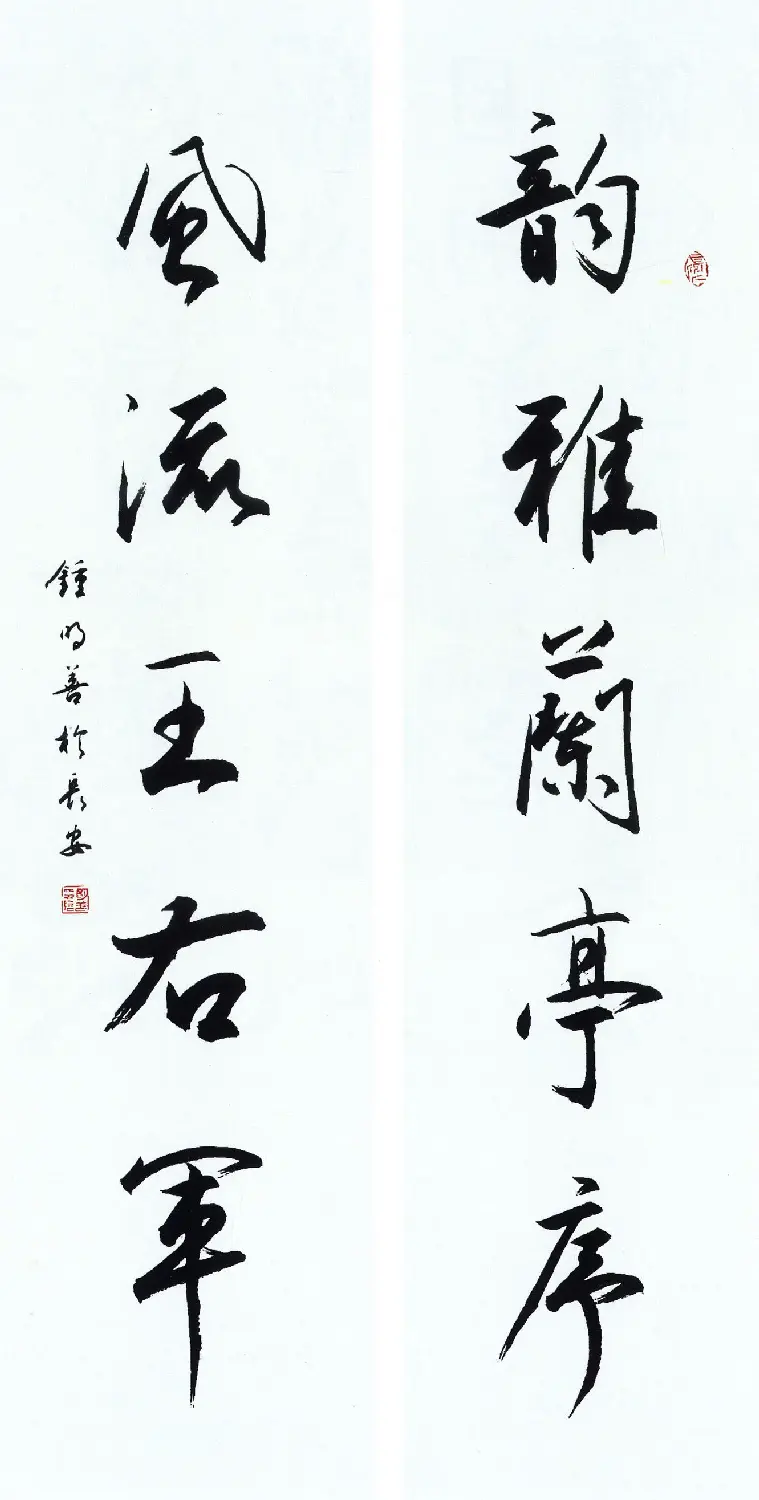 韵雅蘭亭序
風流王右軍
鍾明善於長安